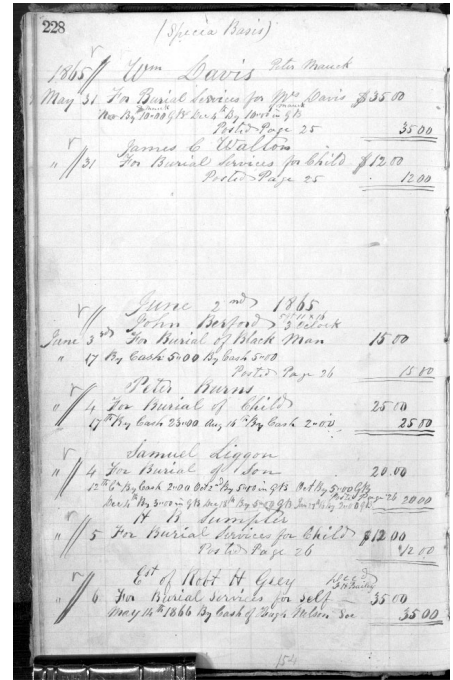 228
(Specia Basis)
1865 Wm Davis Peter Mauck
May 31 For Burial Services for Mrs Davis $35.00
By 10=00 GB Dec 4th By 10=00 in GB
Posted Page 25 35 00
James C Walton
" 31 For Burial Services for Child $12.00
Posted Page 25 12 00
June 2nd 1865
John Berford 3 O Clock
June 3rd For Burial of Black Man 15 00
" 17 By Cash 5=00 By Cash 5=00
Posted Page 26 15.00
Peter Burns
" 4 For Burial of Child 25 00
17th By Cash 23=00 Aug 15th By Cash 2=00 25 00
Samuel Liggon
" 4 For Burial of Son 20.00
12th By Cash 2=00 Oct 2nd By 5=00 in GB Oct By 5=00 GB
Dec 4th By 3=00 in GB By 5=00 GB 20 00
H B Sumpter
" 5 For Burial Services for Child $12.00
Posted Page 26 12 00
Est of Robt H Grey
" 6 For Burial Services for self 35 00
May 14th 1866 By Cash of Hugh Nelson Sec 35 00
154